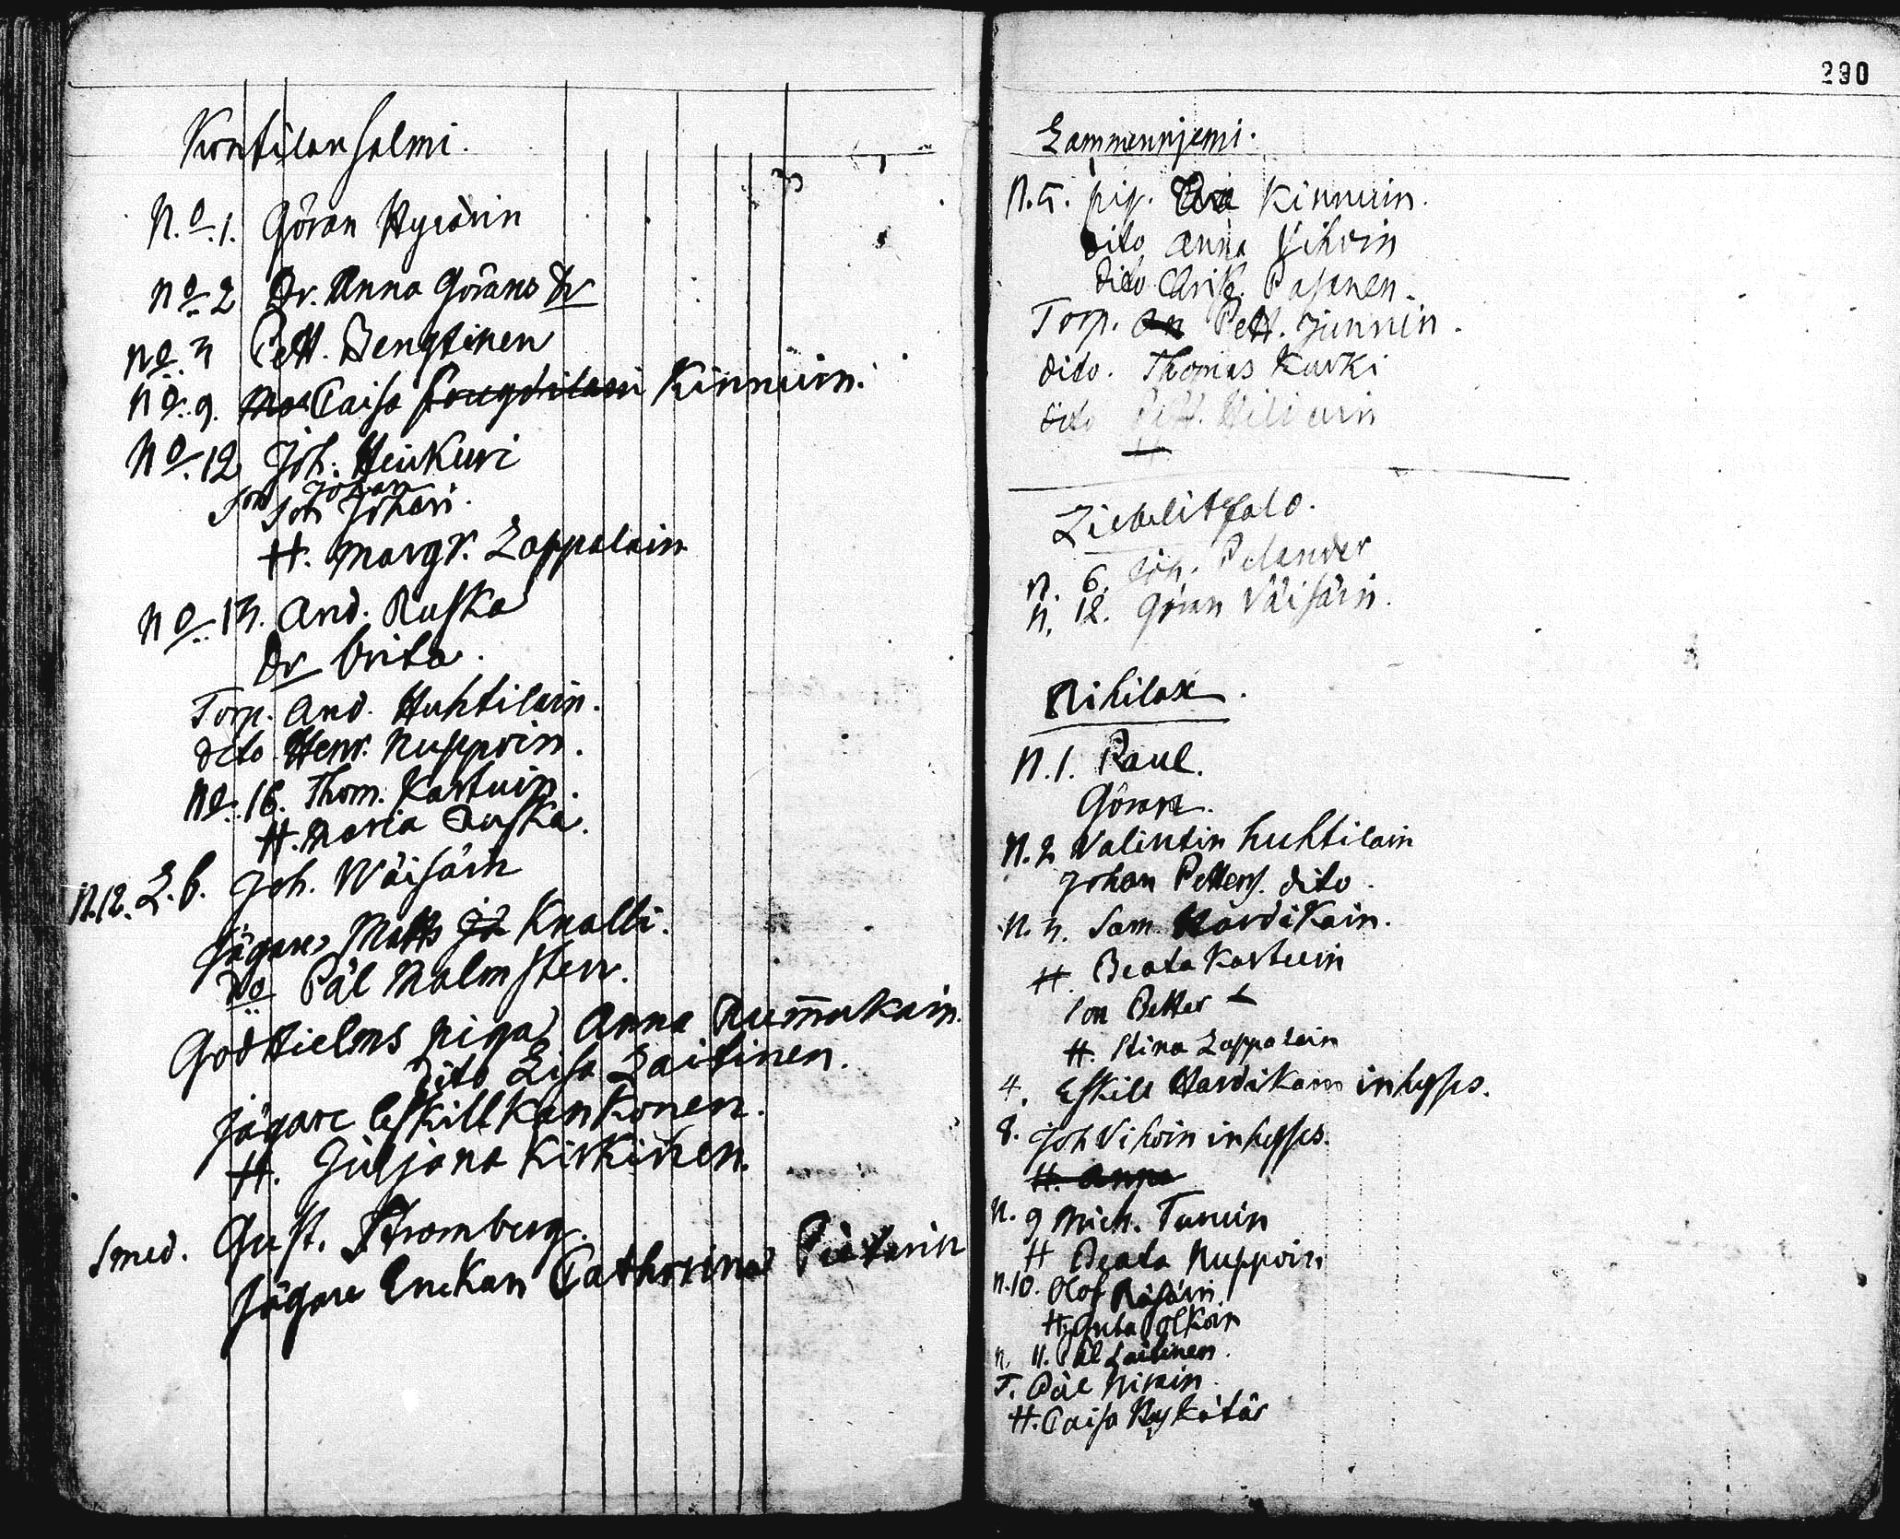 Kontilansalmi.
N.o.1. Göran Hyvärin
No 2 Dr. Anna Görans Dr
No 3 Pett. Bengtinen
No. 9. Caisa Kinnuin.
No. 12 Joh. Heiskuri
Johan
Son Joh Johan.
H. Margr. Lappalain
No. 13. And. Ruska
Dr brita.
Torp. And. Huhtilain.
dito Henr. Nuppoin.
No. 16. Thom. Kartuin.
H. Maria Ruska.
N.12. L.b. Joh. Wäisäin
Jägare Matts Knalli.
Do Pål Malmsten.
Godthielms piga Anna Rummukain.
Dito Lisa Laitinen.
Jägare Eskill Kankonen.
H. Juljana Kirkinen.
Smed. Gust. Stromberg.
Jägare Enckan Cathrina
290
Lammenniemi.
N. 5. pig. Kinnuin.
Dito Anna Vihoin
dito Pasanen.
Torp. Pett. Junnin.
dito. Thomas Kurki
dito Pett.
N. 6. Joh. Pelander
N. 12. Göran Väisäin.
Rihilax.
N. 1. Paul.
Göran.
N. 2 Valintin huhtilain
Johan Petters. dito.
N. 3. Sam. Hardikain.
H. Beata Kartuin
Son Petter
H. Stina Lappalain
4. Eskill Hardikain inhyses.
8. Joh Vihoin inhyses.
H. Anna
N. 9 Mich. Turuin
H Beata Nuppoin
N. 10. Olof Räsäin
H.
N. 11. Pål Laitinen.
T. Pål
H. Caisa